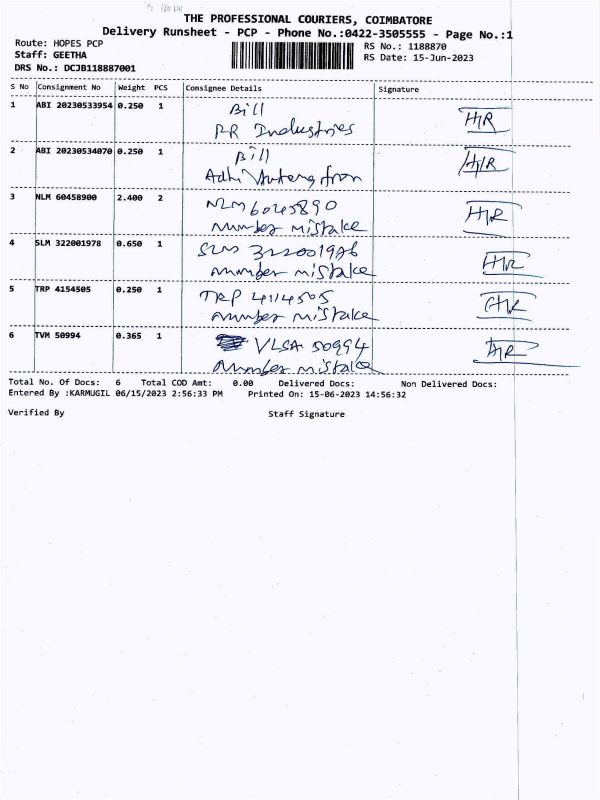 THE PROFESSIONAL COURIERS, COIMBATORE
Delivery Runsheet - PCP - Phone No.:0422-3505555 - Page No.:1
Route: HOPES PCP
Staff: GEETHA
DRS No.: DCJB118887001
RS No.: 1188870
RS Date: 15-Jun-2023
S No Consignment No Weight PCS Consignee Details Signature
1 ABI 20230533954 0.250 1 Bill
RR Industries
2 ABI 20230534070 0.250 1 Bill
Adhi
3 NLM 60458900 2.400 2 NLM 6045890
number mistake
4 SLM 322001978 0.650 1 SLM
number mistake
5 TRP 4154505 0.250 1 TRP 4114505
number mistake
6 TVM 50994 0.365 1 VLSA 50994
number mistake
Total No. Of Docs: 6 Total COD Amt: 0.00 Delivered Docs: Non Delivered Docs:
Entered By :KARMUGIL 06/15/2023 2:56:33 PM Printed On: 15-06-2023 14:56:32
Verified By Staff Signature